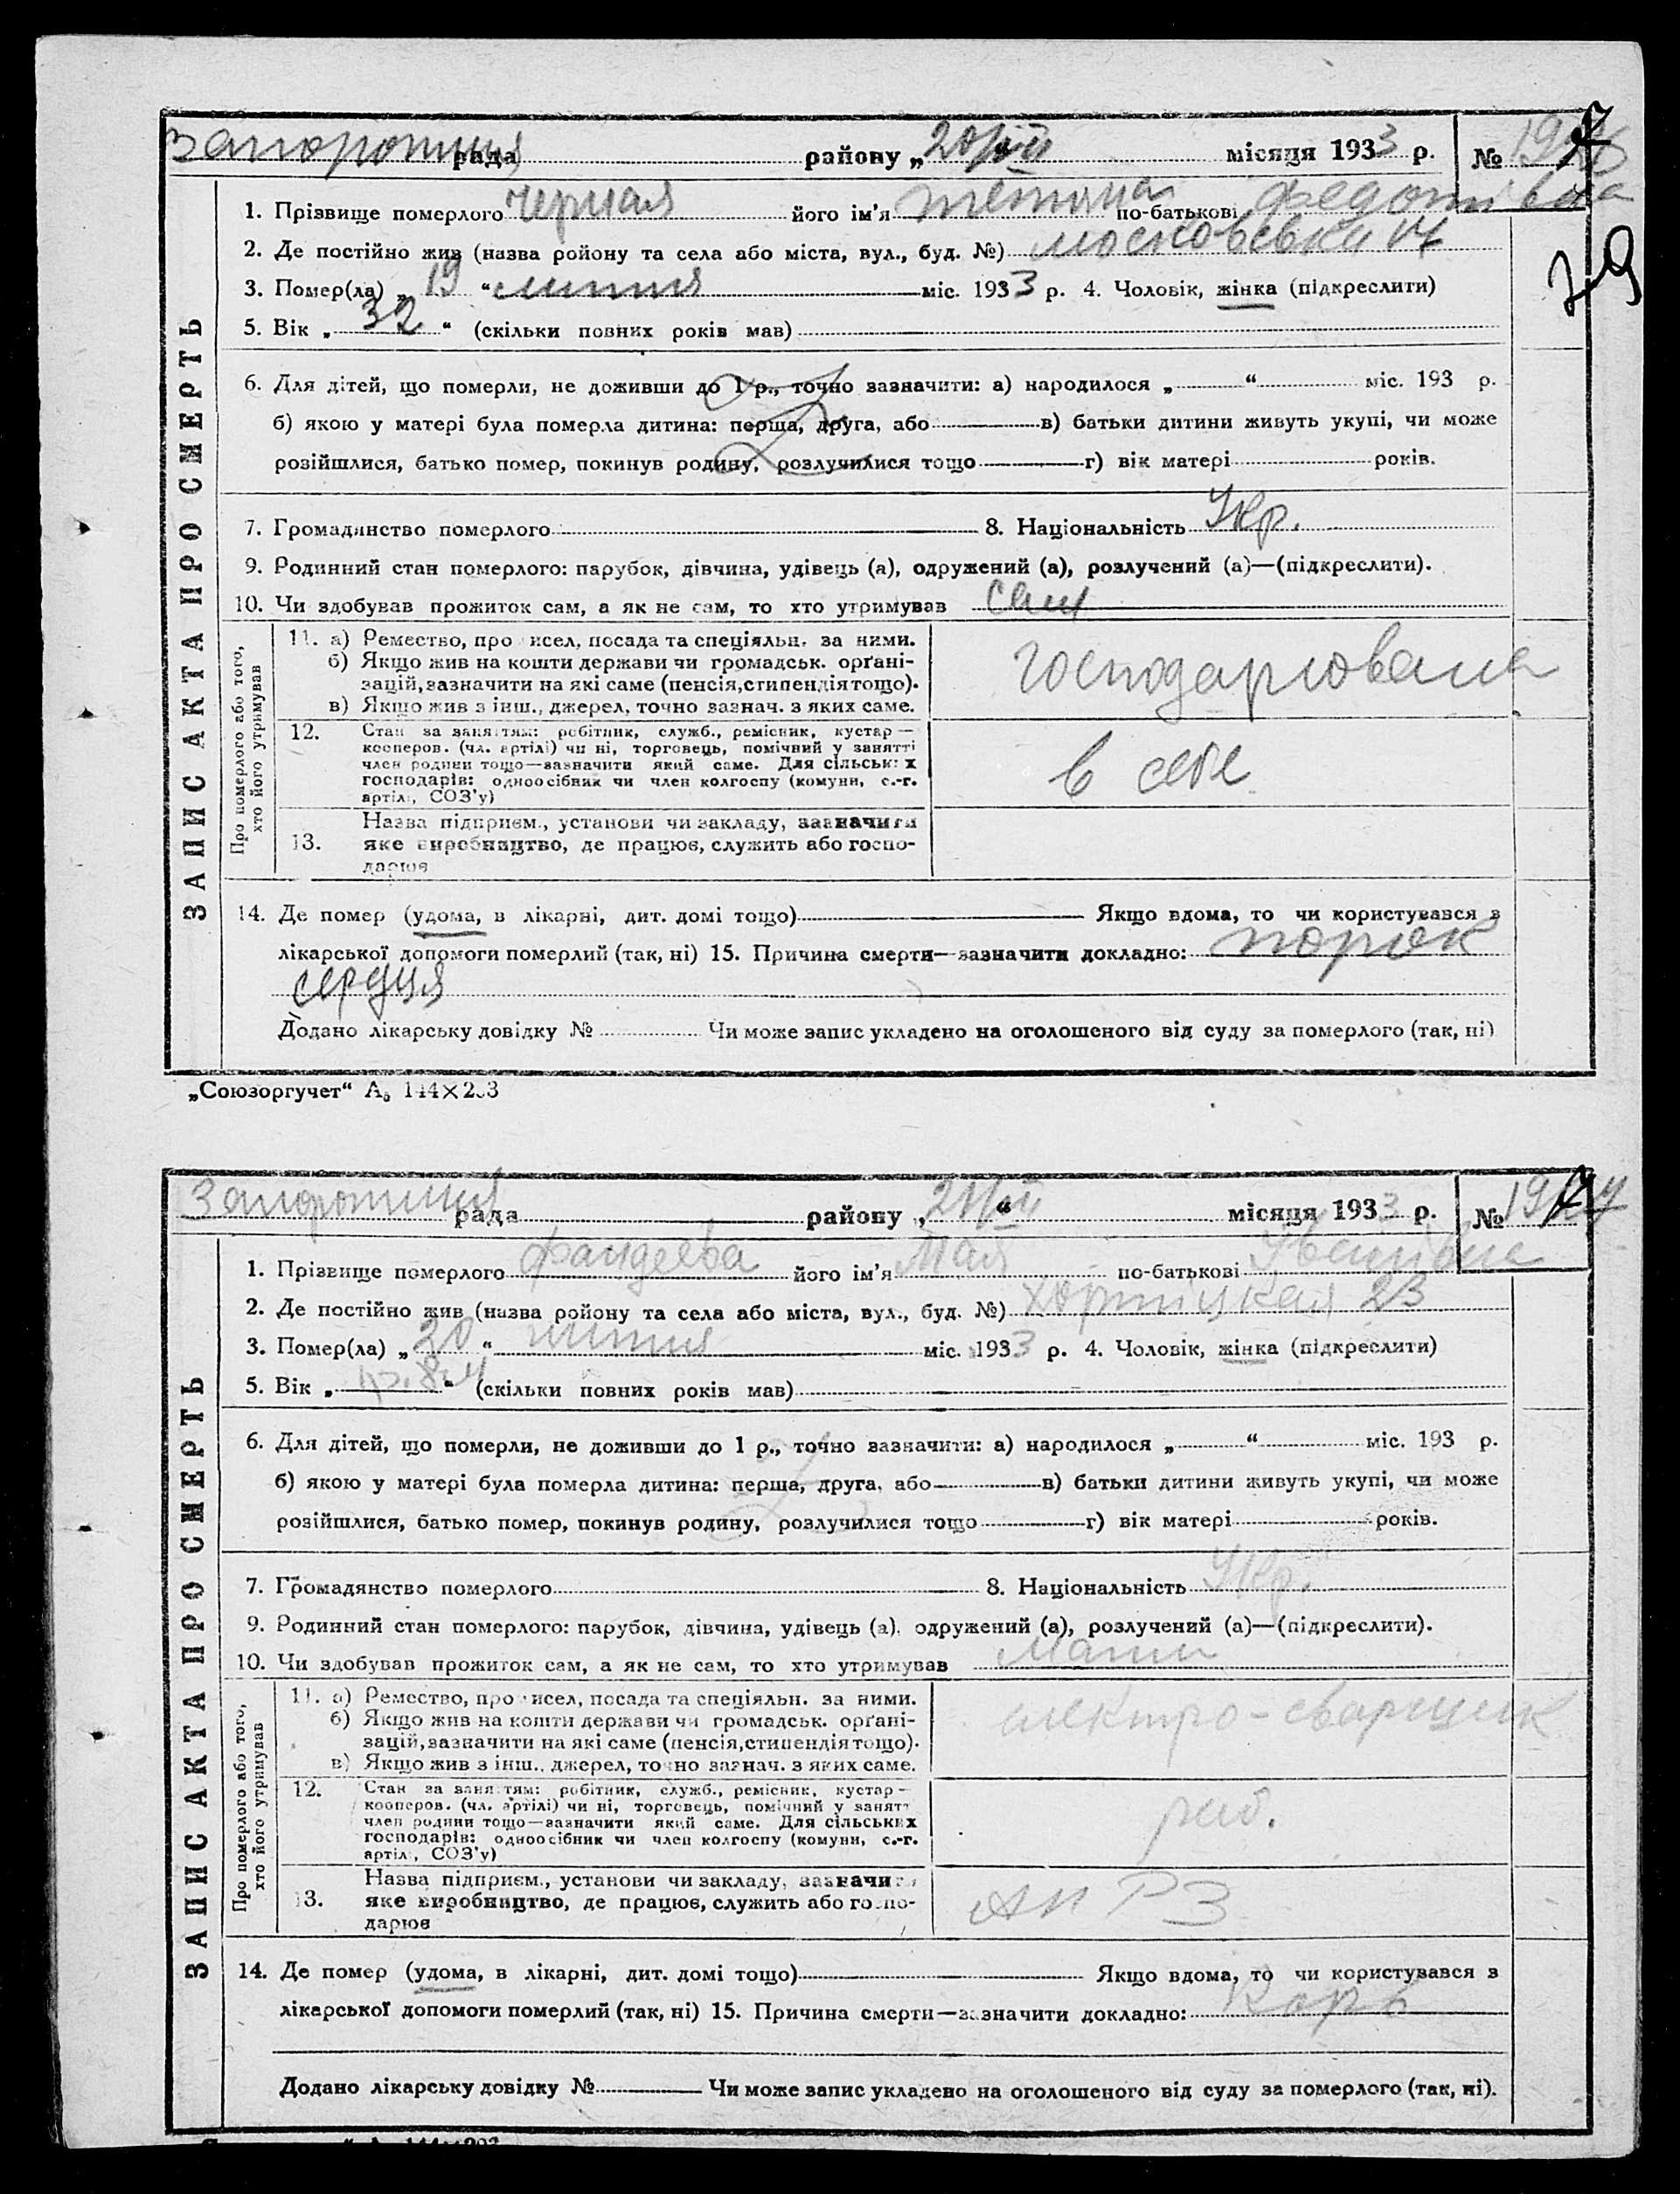 Запорожица рада району „20/VII“ місяця 1933 р. №
79
ЗАПИС АКТА ПРО СМЕРТЬ
1. Прізвище померлого Черная його ім'я Тетяна по-батькові Федотівна
2. Де постійно жив (назва ройону та села або міста, вул., буд. №) Московська 17
3. Помер(ла) „19“ липня міс. 1933 р. 4. Чоловік, жінка (підкреслити)
5. Вік „32“ (скільки повних років мав)
6. Для дітей, що померли, не доживши до 1 р., точно зазначити: а) народилося „ “ міс. 193 р.
б) якою у матері була померла дитина: перша, друга, або в) батьки дитини живуть укупі, чи може
розійшлися, батько помер, покинув родину, розлучилися тощо г) вік матері років.
7. Громадянство померлого 8. Національність Укр.
9. Родинний стан померлого: парубок, дівчина, удівець (а), одружений (а), розлучений (а)—(підкреслити).
10. Чи здобував прожиток сам, а як не сам, то хто утримував сам
Про померлого або того, хто його утримував
11. а) Ремество, промисел, посада та спеціяльн. за ними.
б) Якщо жив на кошти держави чи громадськ. орґані-
зацій, зазначити на які саме (пенсія, стипендія тощо).
в) Якщо жив з інш., джерел, точно зазнач. з яких саме.
господарювала
12. Стан за заняттям: робітник, служб., ремісник, кустар—
кооперов. (чл. артілі) чи ні, торговець, помічний у занятті
член родини тощо—зазначити який саме. Для сільських
господарів: одноосібник чи член колгоспу (комуни, с.-г.
артілі, СОЗ'у)
в себе
13. Назва підприєм., установи чи закладу, зазначити
яке виробництво, де працює, служить або госпо-
дарює
14. Де помер (удома, в лікарні, дит. домі тощо) Якщо вдома, то чи користувався з
лікарської допомоги померлий (так, ні) 15. Причина смерти—зазначити докладно: порок
сердця
Додано лікарську довідку № Чи може запис укладено на оголошеного від суду за померлого (так, ні)
„Союзоргучет“ А₅ 144×203
Запорожиця рада району „21/VII“ місяця 1933 р. №
ЗАПИС АКТА ПРО СМЕРТЬ
1. Прізвище померлого Фандеева його ім'я Мая по-батькові Іванівна
2. Де постійно жив (назва ройону та села або міста, вул., буд. №) Хортицкая 23
3. Помер(ла) „20“ липня міс. 1933 р. 4. Чоловік, жінка (підкреслити)
5. Вік „ “ (скільки повних років мав)
6. Для дітей, що померли, не доживши до 1 р., точно зазначити: а) народилося „ “ міс. 193 р.
б) якою у матері була померла дитина: перша, друга, або в) батьки дитини живуть укупі, чи може
розійшлися, батько помер, покинув родину, розлучилися тощо г) вік матері років.
7. Громадянство померлого 8. Національність Укр.
9. Родинний стан померлого: парубок, дівчина, удівець (а), одружений (а), розлучений (а)—(підкреслити).
10. Чи здобував прожиток сам, а як не сам, то хто утримував Мати
Про померлого або того, хто його утримував
11. а) Ремество, промисел, посада та спеціяльн. за ними.
б) Якщо жив на кошти держави чи громадськ. орґані-
зацій, зазначити на які саме (пенсія, стипендія тощо).
в) Якщо жив з інш., джерел, точно зазнач. з яких саме.
електро-сварщик
12. Стан за заняттям: робітник, служб., ремісник, кустар—
кооперов. (чл. артілі) чи ні, торговець, помічний у занятт
член родини тощо—зазначити який саме. Для сільських
господарів: одноосібник чи член колгоспу (комуни, с.-г.
артілі, СОЗ'у)
роб.
13. Назва підприєм., установи чи закладу, зазначити
яке виробництво, де працює, служить або госпо-
дарює
14. Де помер (удома, в лікарні, дит. домі тощо) Якщо вдома, то чи користувався з
лікарської допомоги померлий (так, ні) 15. Причина смерти—зазначити докладно: Корь
Додано лікарську довідку № Чи може запис укладено на оголошеного від суду за померлого (так, ні).